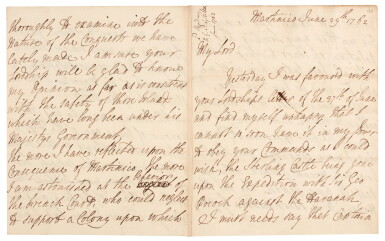 Martinico June 29th 1762
My Lord
Yesterday I was favored with
your Lordships letter of the 27th of June
and find myself unhappy that I
cannot so soon have it in my power
to obey your Commands as I could
wish, the Sterling Castle being gone
upon the Expedition with Sir Geo
Pocock against the Havanah.
I must needs say that Captain
thoroughly to examine into the
Nature of the Conquests we have
lately made I am sure your
Lordship will be glad to know
my Opinion as far as is consistent
with the safety of those Islands
which have long been under his
Majestys Government,
the more I have reflected upon the
Consequence of Martinico, the more
I am astonished at the of
the french Court, who could neglect
to support a Colony upon which